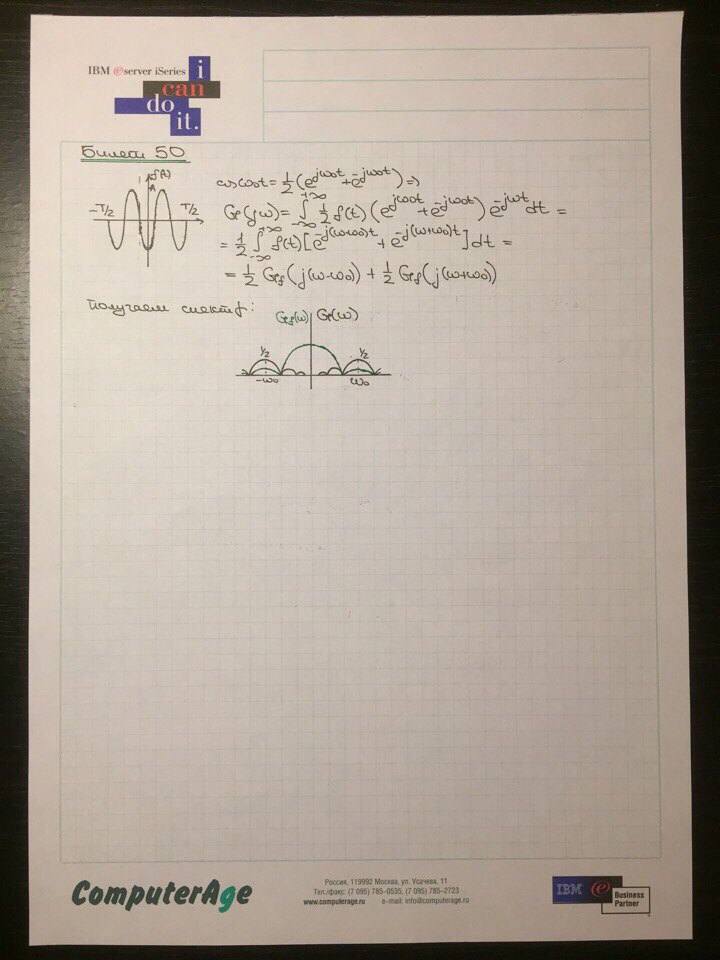 IBM e server iSeries i
can
do
it.
Билет 50
f(t)
1
-T/2 T/2
cos ω₀t = 1/2 (e^{jω₀t} + e^{-jω₀t}) =>
G(jω) = ∫_{-∞}^{+∞} 1/2 f(t) (e^{jω₀t} + e^{-jω₀t}) e^{-jωt} dt =
= 1/2 ∫_{-∞}^{+∞} f(t) [e^{-j(ω-ω₀)t} + e^{-j(ω+ω₀)t}] dt =
= 1/2 G_f(j(ω-ω₀)) + 1/2 G_f(j(ω+ω₀))
Получаем спектр:
G_f(ω) G(ω)
1/2 1/2
-ω₀ ω₀
ComputerAge
Россия, 119992 Москва, ул. Усачева, 11
Тел./факс: (7 095) 785-0535, (7 095) 785-2723
www.computerage.ru e-mail: info@computerage.ru
IBM e Business
Partner